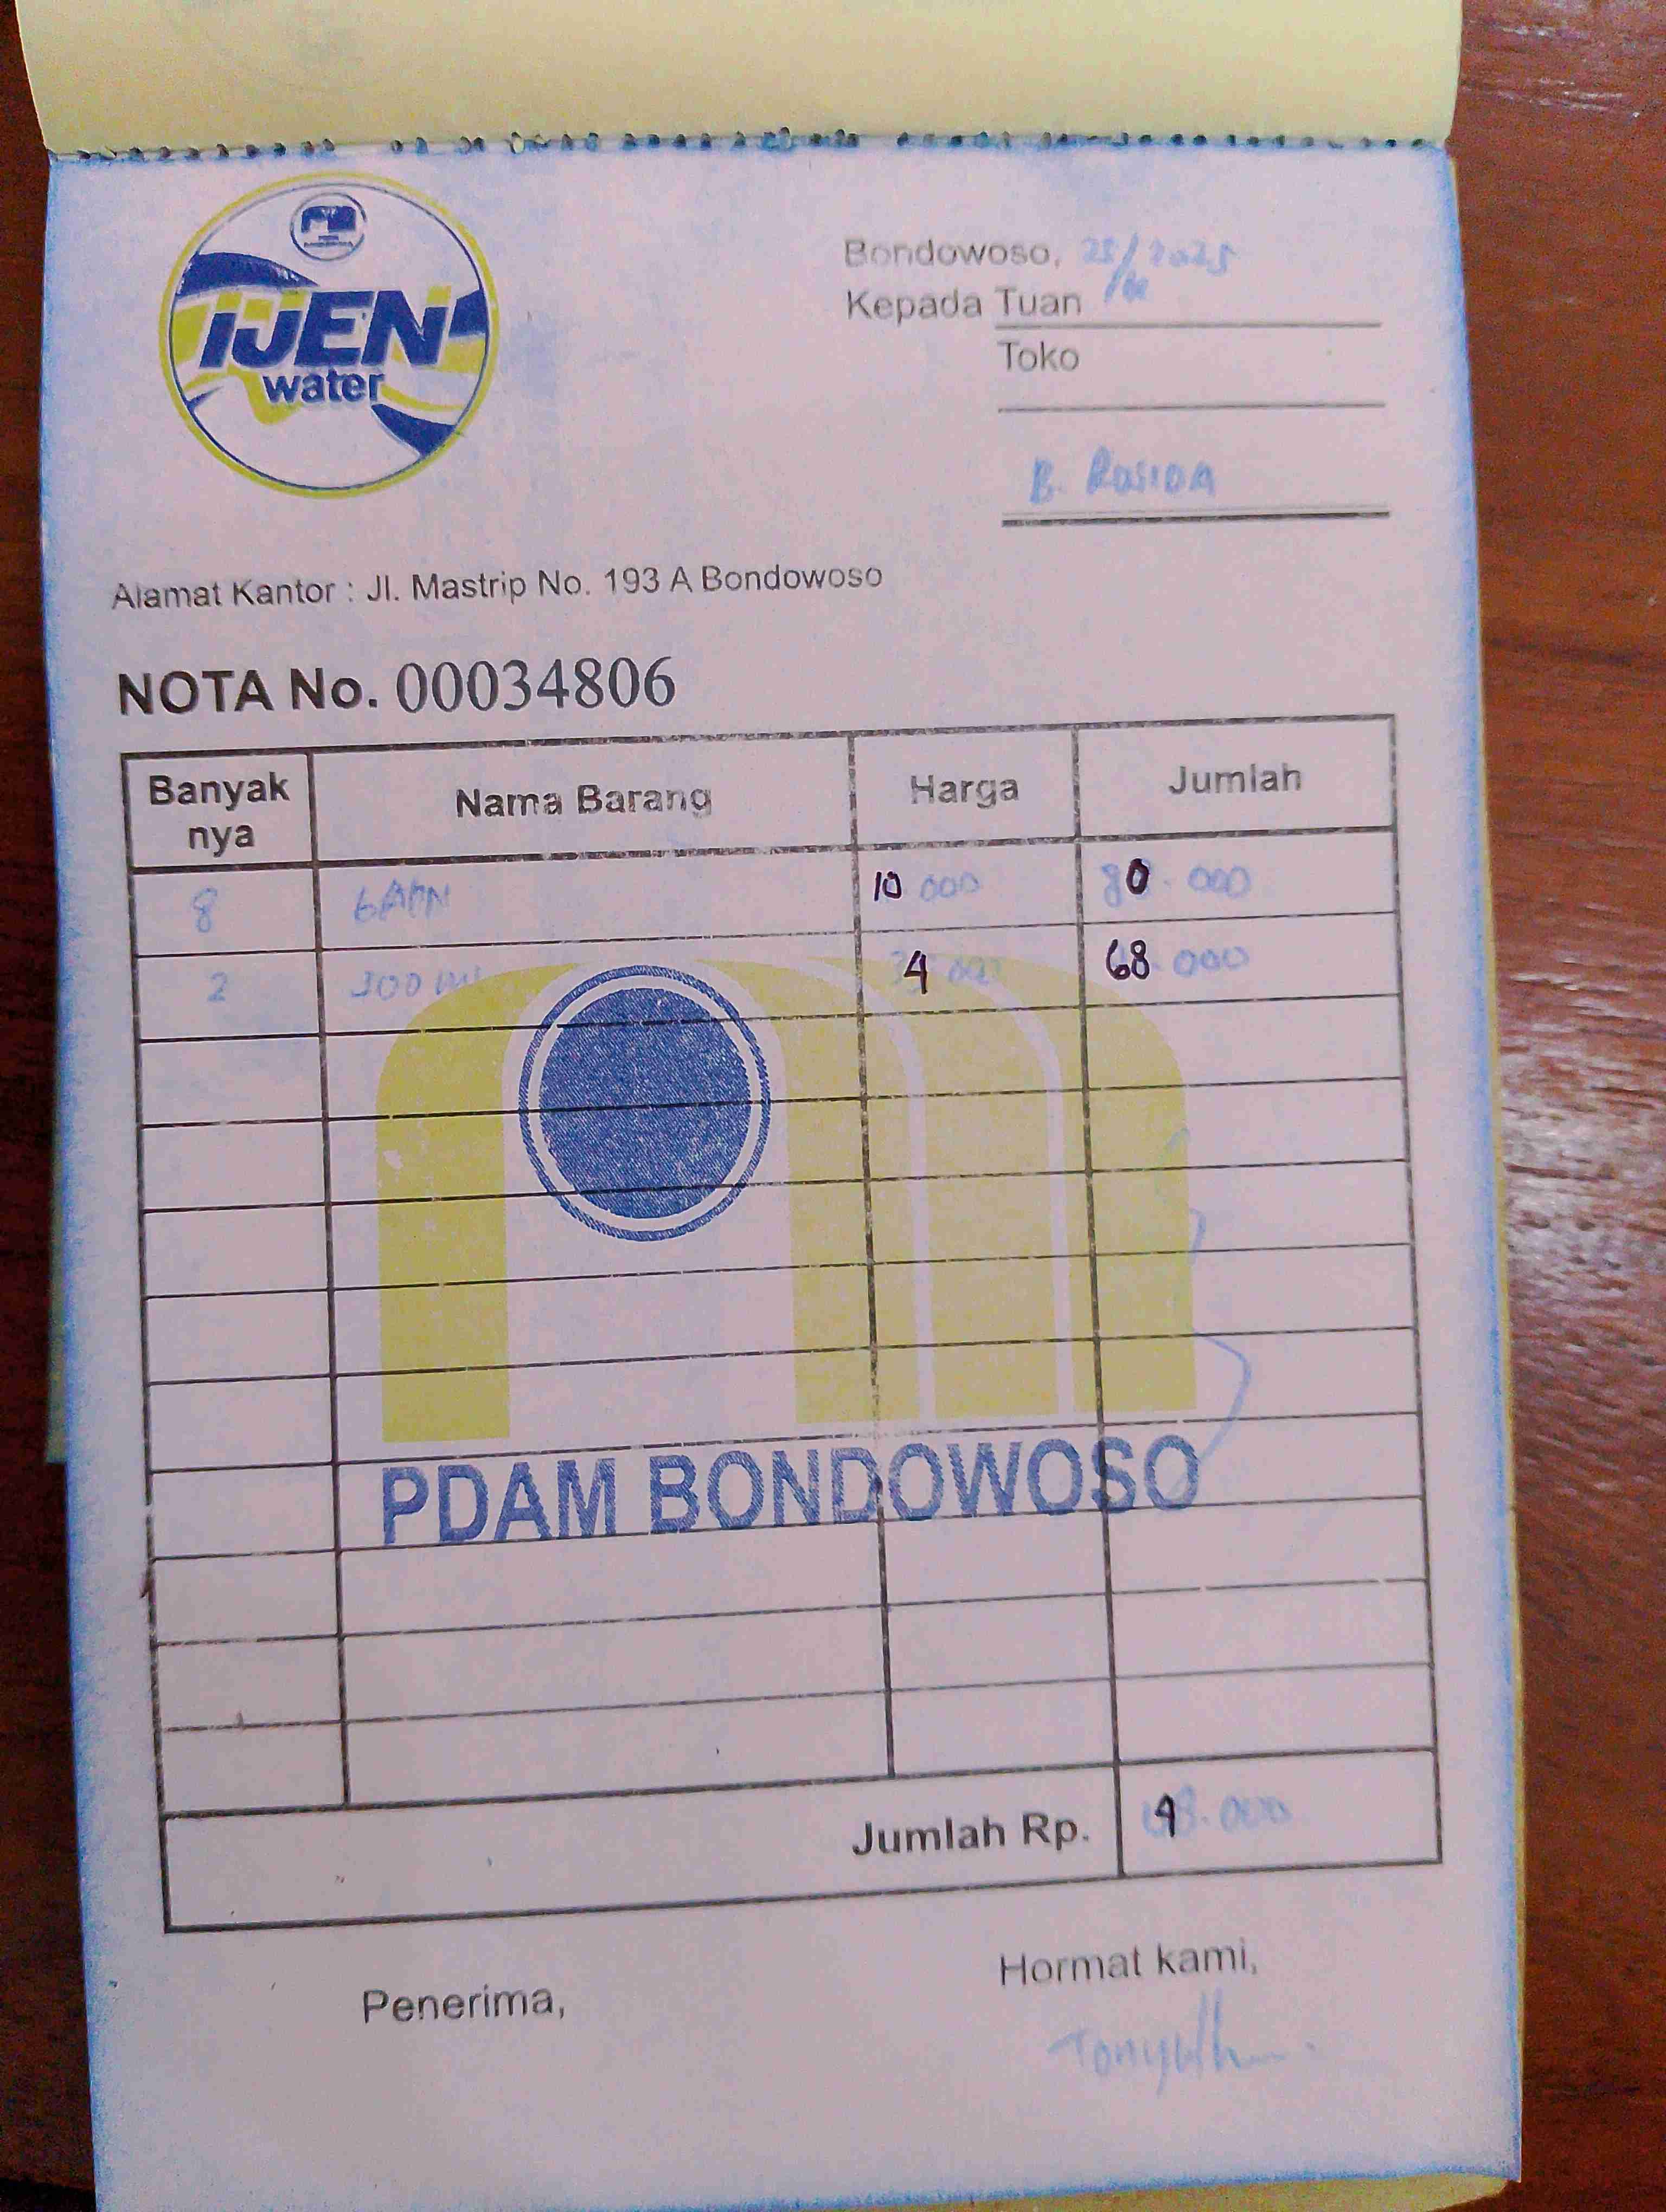 IJEN
water
Bondowoso, 25/ 2025
Kepada Tuan
Toko
B. Rosida
Alamat Kantor : Jl. Mastrip No. 193 A Bondowoso
NOTA No. 00034806
Banyak nya Nama Barang Harga Jumlah
8 10 000 80.000
2 300 ml 4 000 68.000
PDAM BONDOWOSO
Jumlah Rp.
Penerima,
Hormat kami,